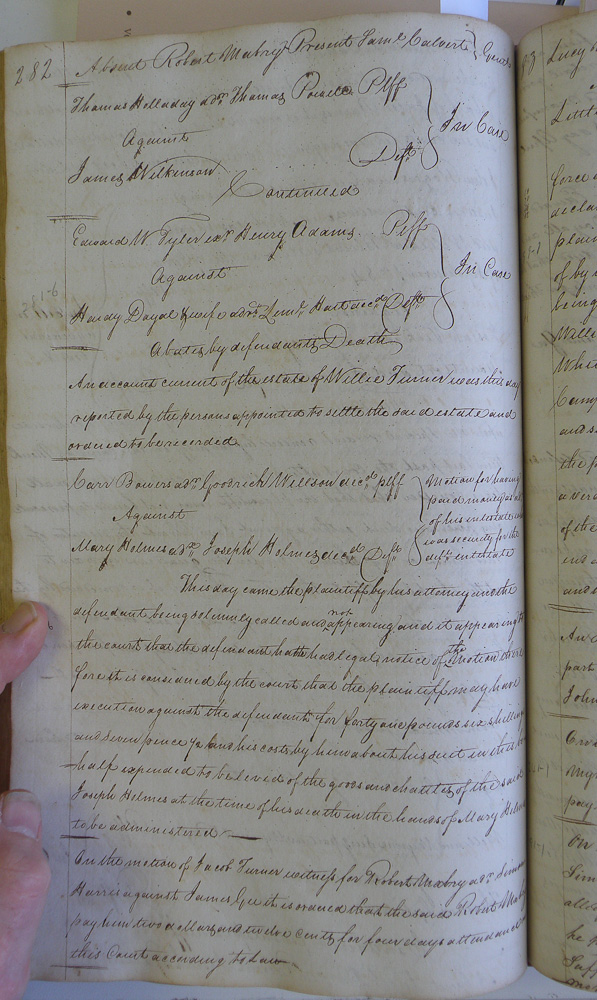 282
Absent Robert Mabry Present Saml Calvert } Gent
Thomas Holladay adr Thomas Powell Plff
Against } In Case
James Wilkinson Deft
Continued
Edward W. Tyler exr Henry Adams Plff
Against } In Case
Hardy Doyal & wife adrs Lemr Hart decd Defts
Abates by defendants Death
An account current of the estate of Willie Turner was this day
reported by the persons appointed to settle the said estate and
ordered to be recorded
Carr Bowers adr Goodrich Willson decd plff
Against
Mary Holmes adx Joseph Holmes decd Deft
Motion for having
paid money as
of his intestate
was security for the
defts intestate
This day came the plaintiff by his attorney and the
defendant being solemnly called and not appearing and it appearing to
the court that the defendant hath had legal notice of the motion there
fore it is considered by the court that the plaintiff may have
execution against the defendant for forty one pounds six shillings
and seven pence ½ and his costs by him about his suit in this be
half expended to be levied of the goods and chattels of the said
Joseph Holmes at the time of his death in the hands of Mary Holmes
to be administered
On the motion of Jacob Turner witness for Robert Mabry adr
Harris against James it is ordered that the said Robert Mabry
pay him two dollars and twelve cents for four days attendance
this Court according to Law